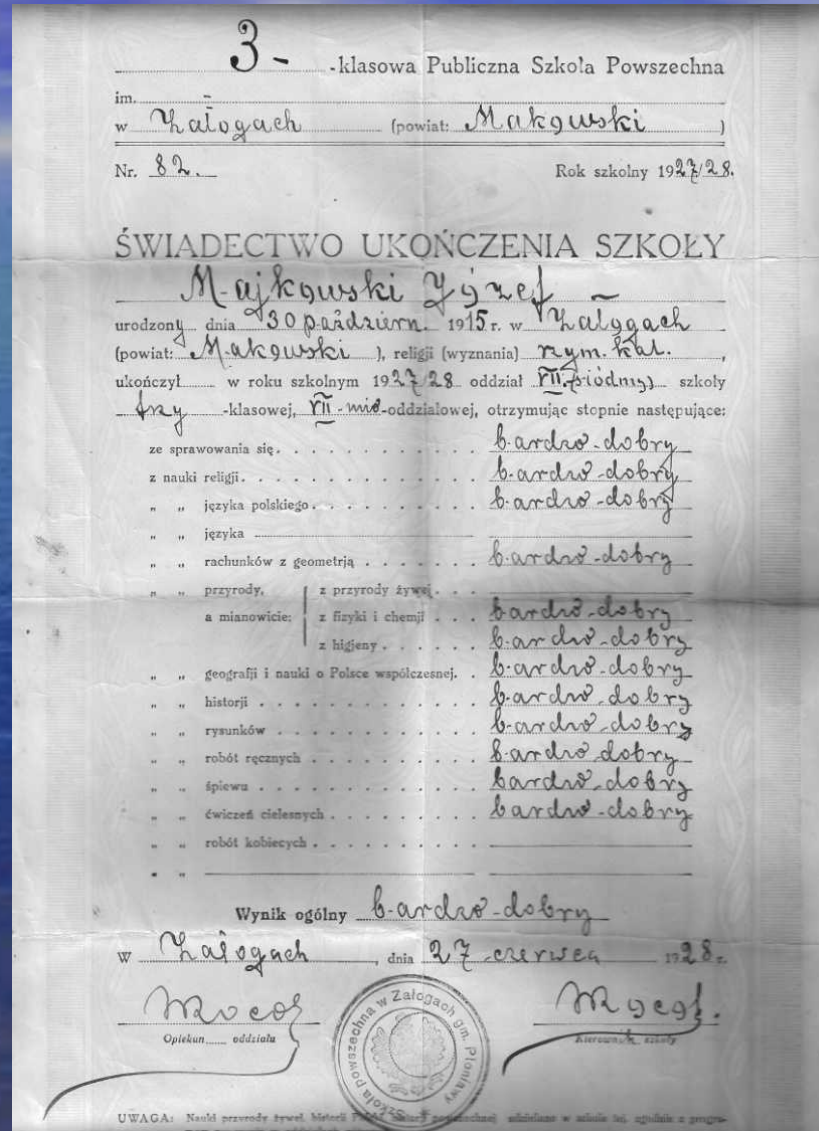 3- -klasowa Publiczna Szkoła Powszechna
im. -
w Załogach (powiat: Makowski )
Nr. 82. Rok szkolny 1927/28.
ŚWIADECTWO UKOŃCZENIA SZKOŁY
Majkowski Józef
urodzony dnia 30 październ. 1915 r. w Załogach
(powiat: Makowski ), religji (wyznania) rzym. kat. ,
ukończył w roku szkolnym 1927/28 oddział VII. (siódmy) szkoły
trzy -klasowej, VII-mio-oddziałowej, otrzymując stopnie następujące:
ze sprawowania się. bardzo-dobry
z nauki religji. bardzo-dobry
" " języka polskiego. bardzo-dobry
" " języka
" " rachunków z geometrją bardzo-dobry
" " przyrody, z przyrody żywej.
a mianowicie: z fizyki i chemji bardzo-dobry
z higjeny bardzo-dobry
" " geografji i nauki o Polsce współczesnej. bardzo-dobry
" " historji bardzo-dobry
" " rysunków bardzo-dobry
" " robót ręcznych bardzo-dobry
" " śpiewu bardzo-dobry
" " ćwiczeń cielesnych bardzo-dobry
" " robót kobiecych
" "
Wynik ogólny bardzo-dobry
w Załogach , dnia 27 czerwca 1928 r.
Opiekun oddziału Kierownik szkoły
Szkoła powszechna w Załogach gm. Płoniawy
UWAGA: Nauki przyrody żywej, historji udzielano w szkole tej, zgodnie z progra-